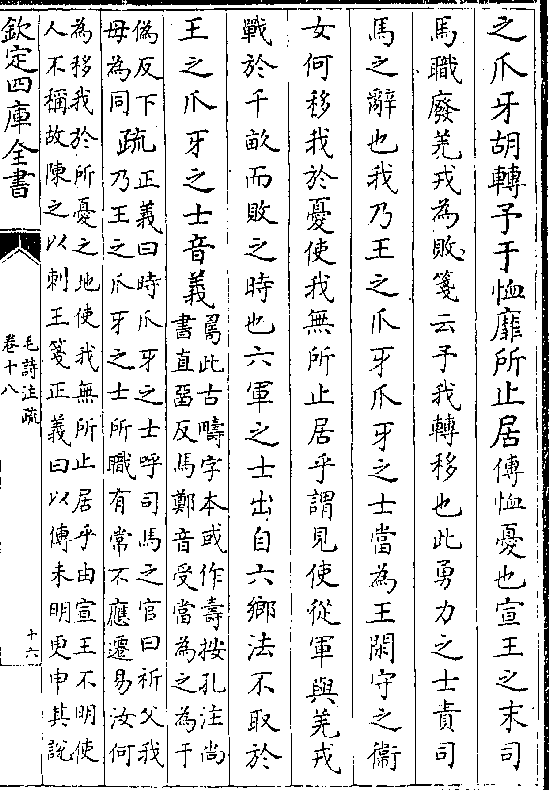 之爪牙胡轉予于恤靡所止居傳恤憂也宣王之末司
馬職廢羌戎為敗箋云予我轉移也此勇力之士責司
馬之辭也我乃王之爪牙爪牙之士當為王閑守之衛
女何移我於憂使我無所止居乎謂見使從軍與羌戎
戰於千畝而敗之時也六軍之士出自六鄉法不取於
王之爪牙之士音義
𠷎此古疇字本或作壽按孔注尚
書直留反馬鄭音受當為之為于
偽反下
母為同
疏
正義曰時爪牙之士呼司馬之官曰祈父我
乃王之爪牙之士所職有常不應遷易汝何
為移我於所憂之地使我無所止居乎由宣王不明使
人不稱故陳之以刺王箋正義曰以傳未明更申其說
欽定四庫全書
毛詩注疏
卷十八
十六